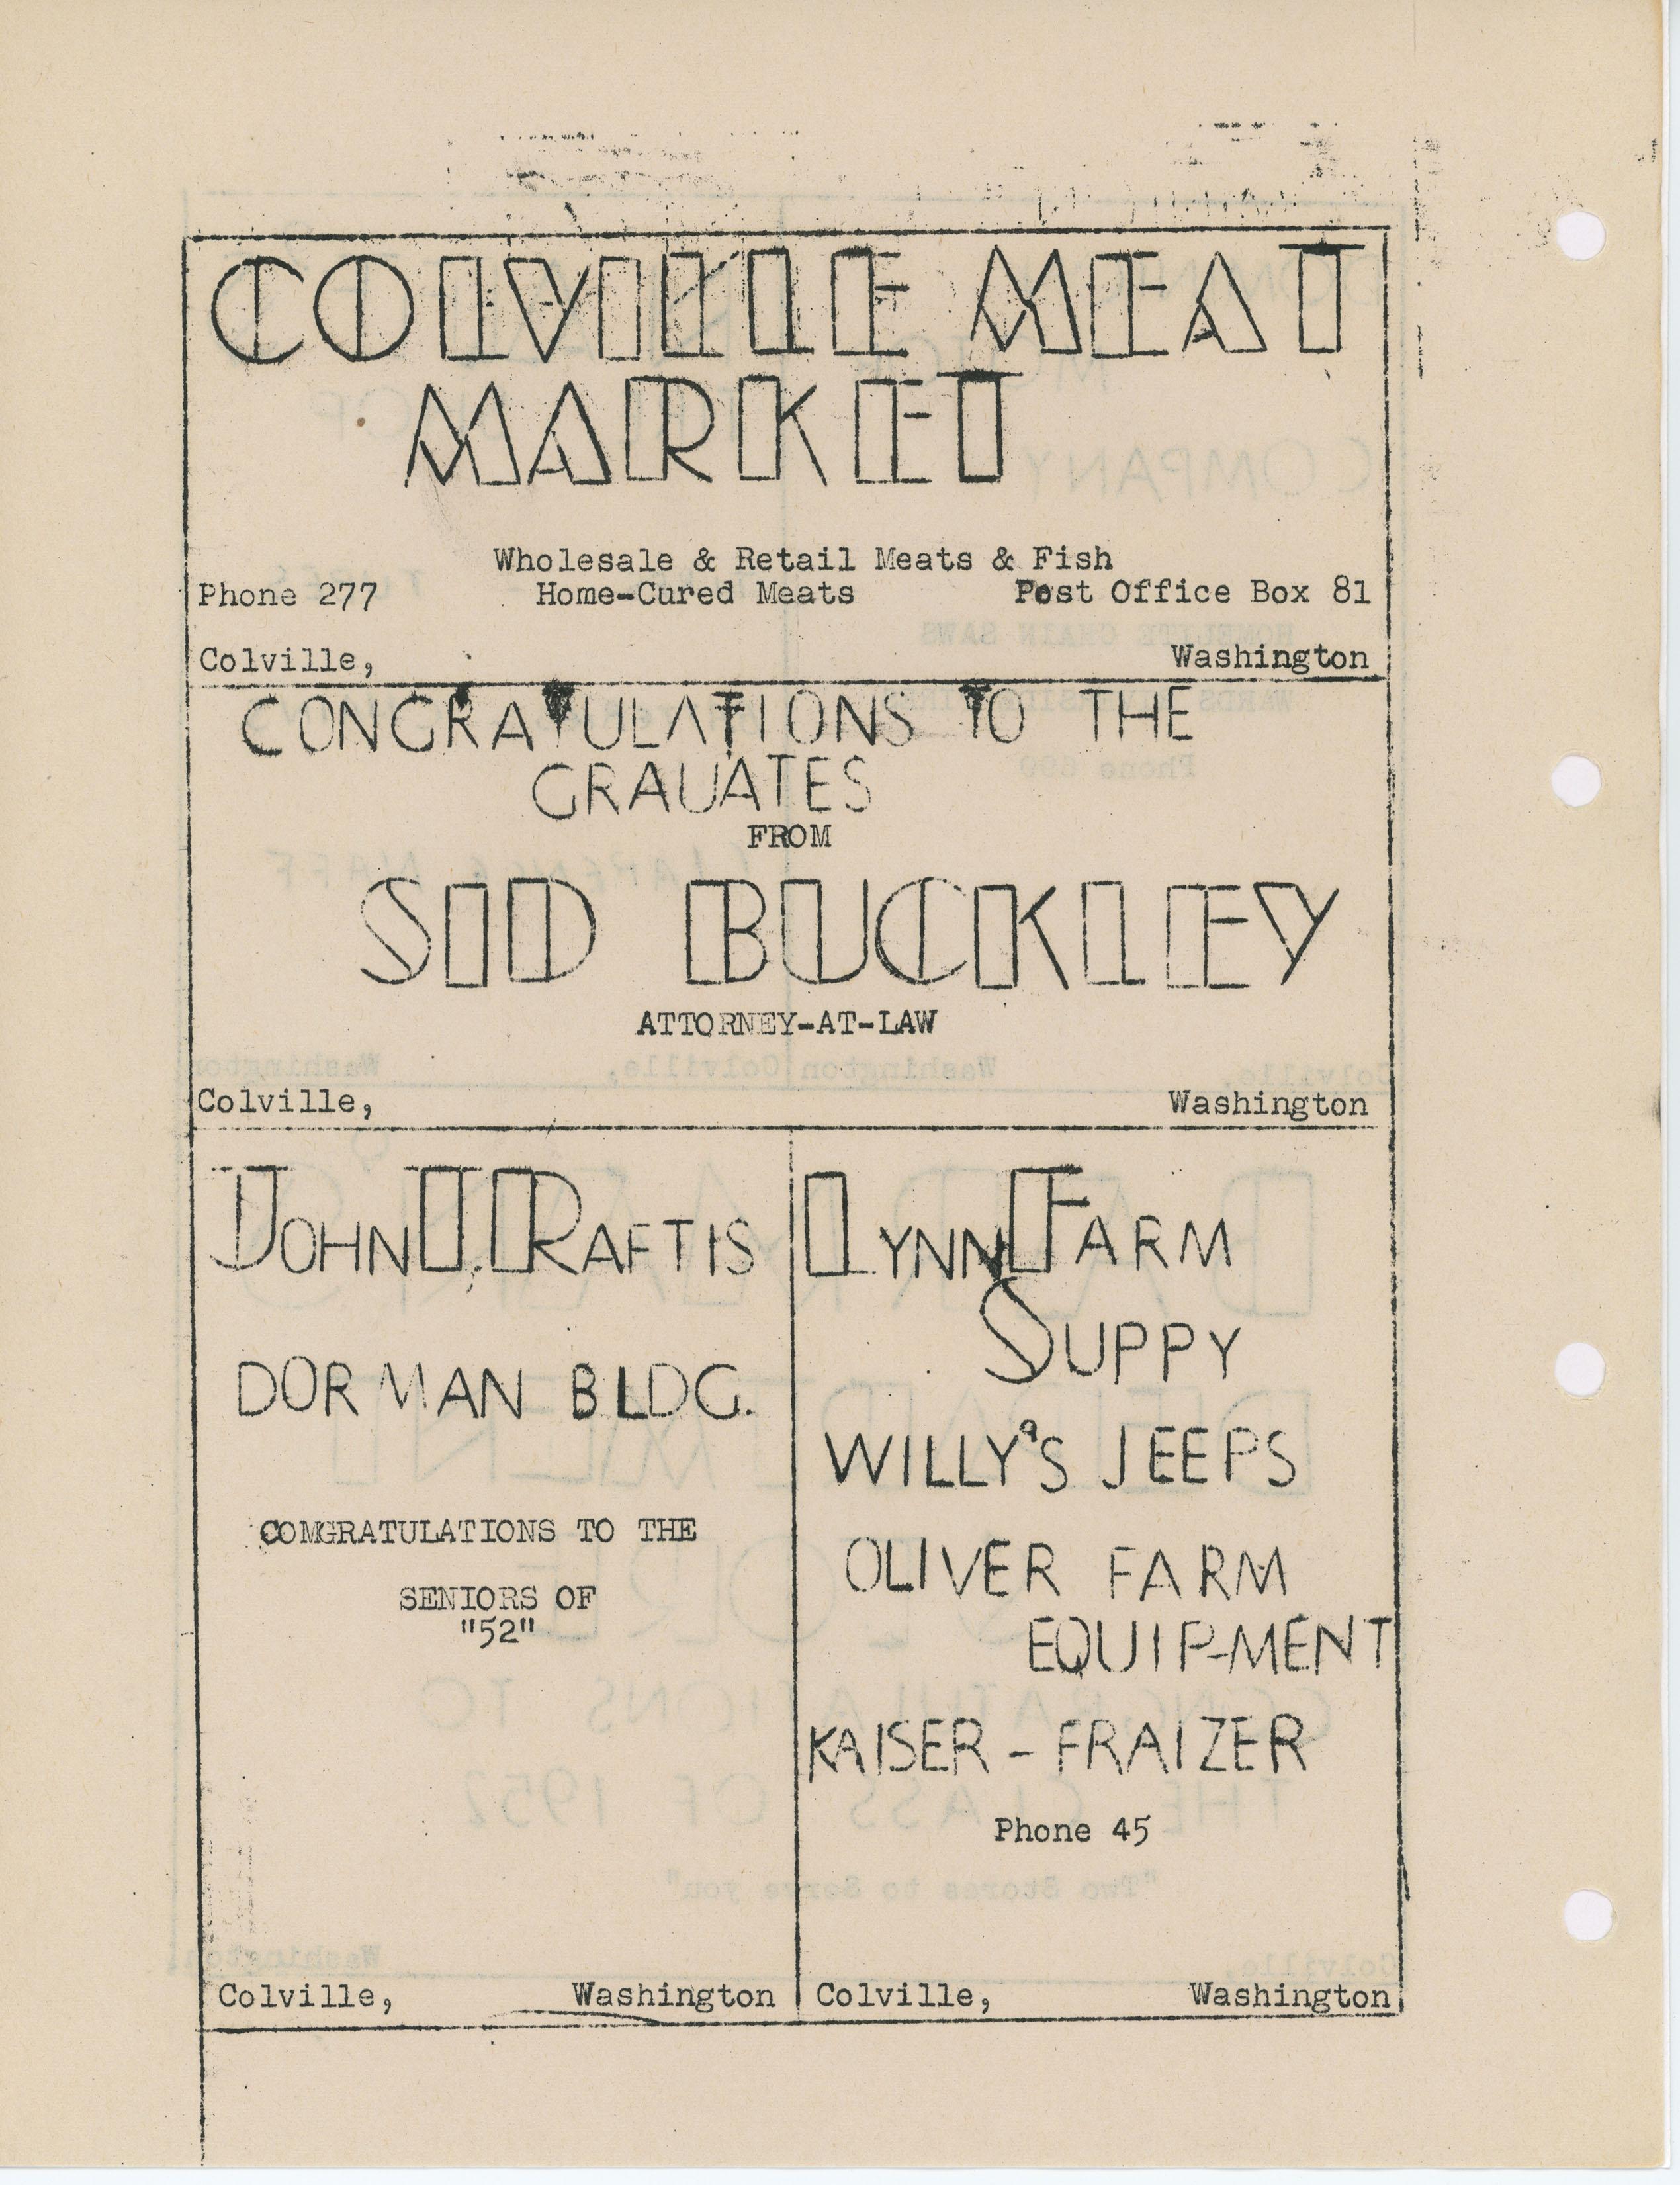 COLVILLE MEAT
MARKET
Wholesale & Retail Meats & Fish
Phone 277 Home-Cured Meats Post Office Box 81
Colville, Washington
CONGRATULATIONS TO THE
GRAUATES
FROM
SID BUCKLEY
ATTORNEY-AT-LAW
Colville, Washington
JOHN T. RAFTIS
DORMAN BLDG.
COMGRATULATIONS TO THE
SENIORS OF
"52"
Colville, Washington
LYNN FARM
SUPPY
WILLY'S JEEPS
OLIVER FARM
EQUIP-MENT
KAISER - FRAIZER
Phone 45
Colville, Washington